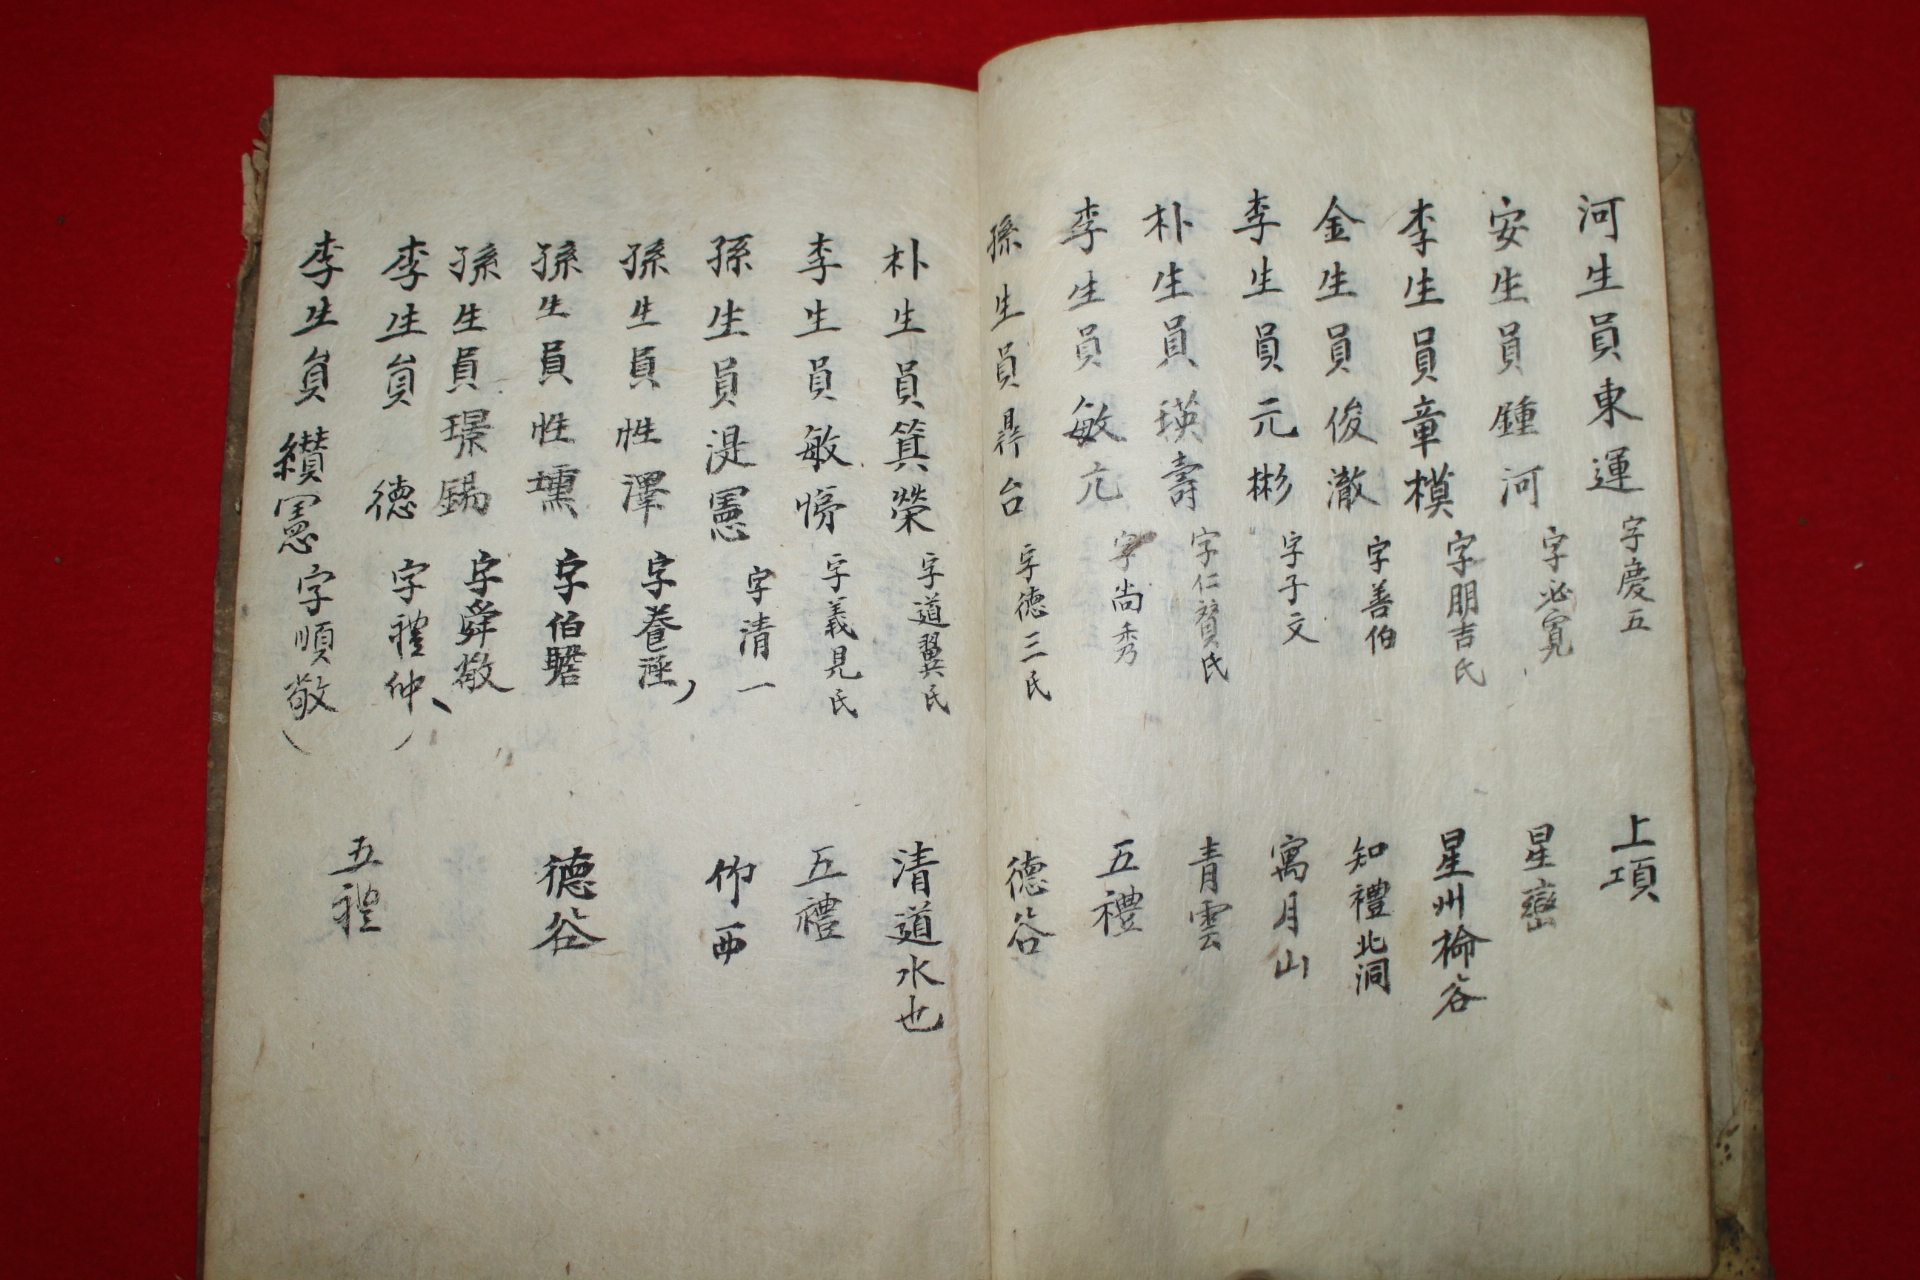 河生員東運 字慶五 上項
安生員鍾河 字必寬 星巒
李生員章模 字朋吉氏 星州楡谷
金生員俊澈 字善伯 知禮北洞
李生員元彬 字子文 寓月山
朴生員瑛壽 字仁賛氏 青雲
李生員敏亢 字尚秀 五禮
孫生員鼎台 字德三氏 德谷
朴生員箕榮 字道翼氏 清道水也
李生員敏 字義見氏 五禮
孫生員湜憲 字清一 仰西
孫生員性澤 字養
孫生員性壎 字伯瞻 德谷
孫生員璟錫 字舜敬
李生員 德 字禮仲
李生員纘憲 字順敬 五禮